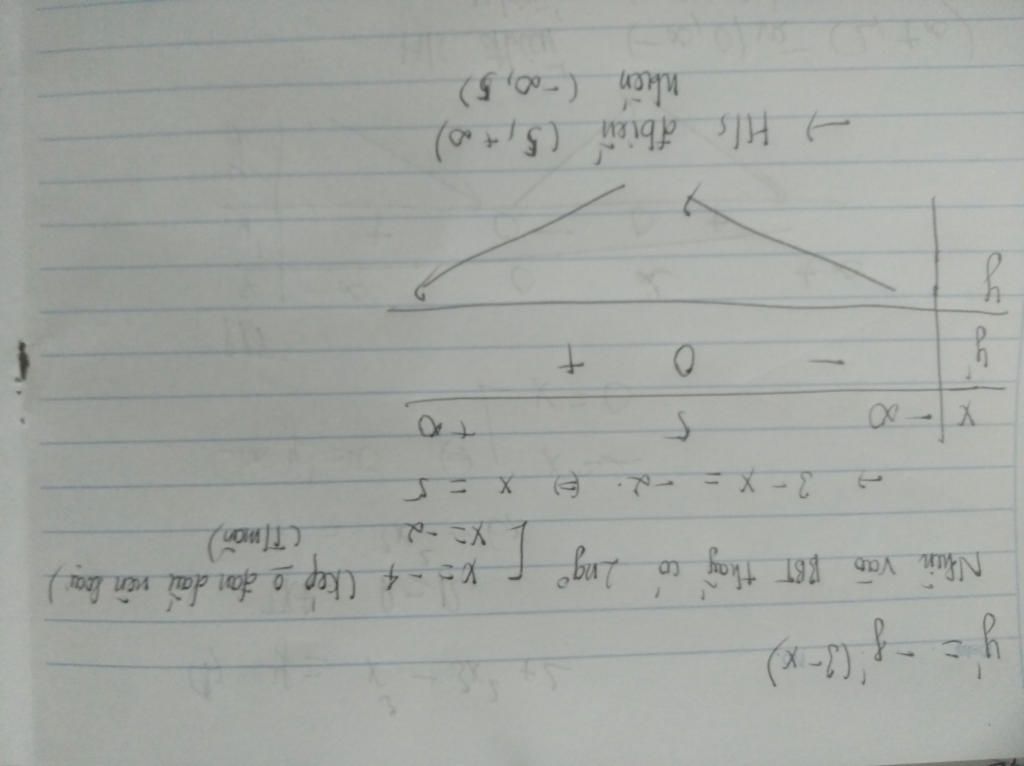 y' = - f'(3-x)
Nhìn vào BBT thấy có 2 ngº [ x = -4 (kép o đan dấu nên loại)
x = -2 (T/mãn)
→ 3 - x = -2 ⇔ x = 5
x | -∞ 5 + ∞
y' | - 0 +
y
→ H/s đbiến (5, +∞)
nbiến (-∞, 5)